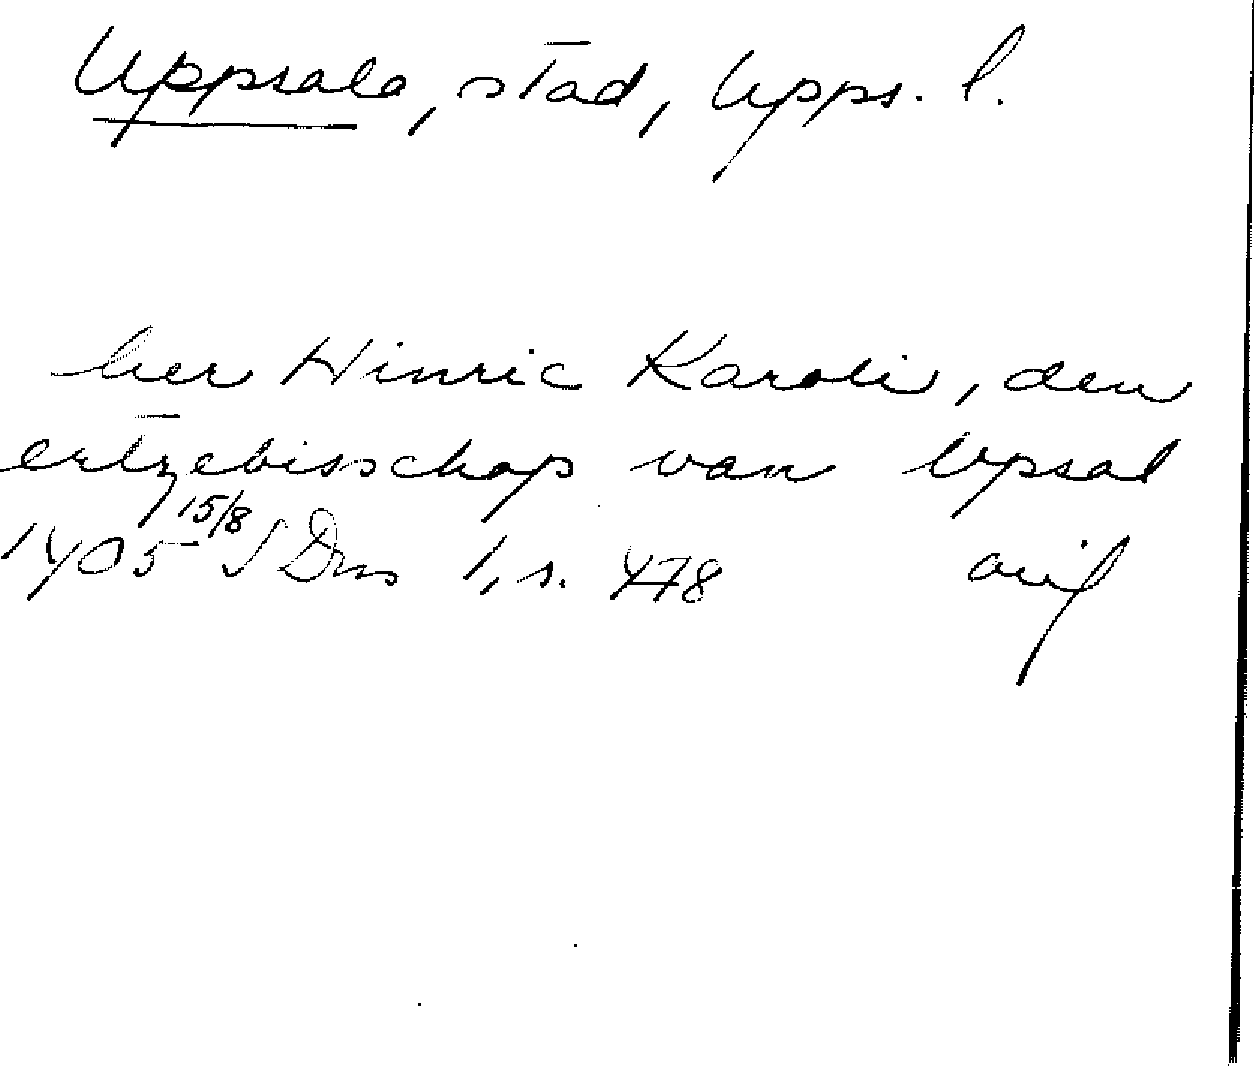 Uppsala, stad, Upps. l.
her Hinric Karoli, den
ertzebisschop van Upsal
1405 15/8 SDns 1, s. 478 avif